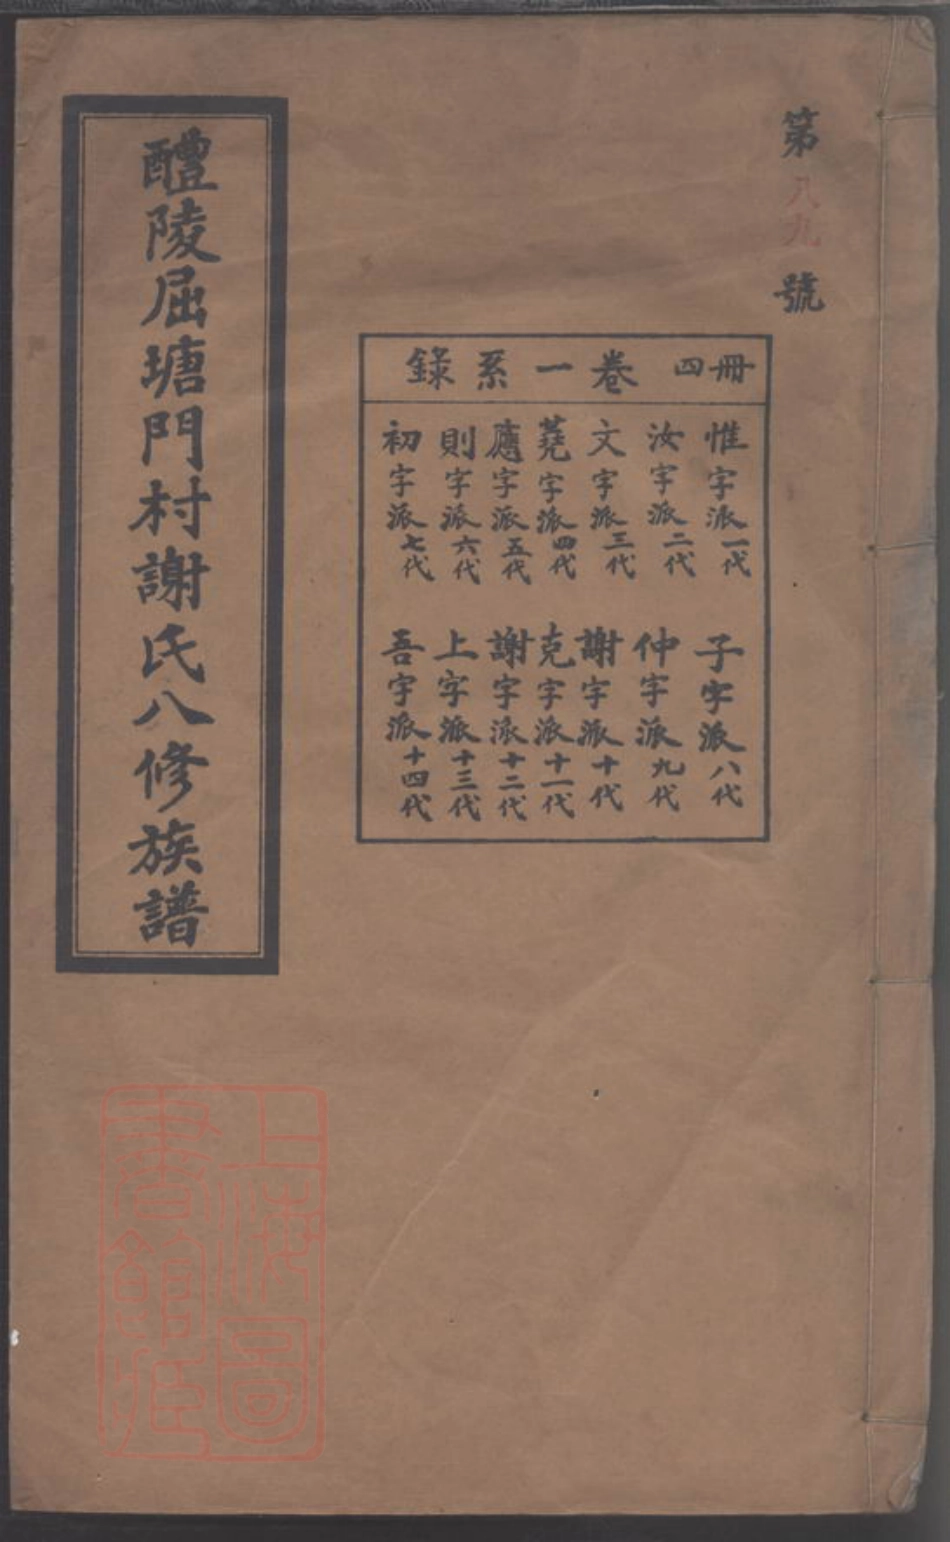 第八九號
冊四 卷一系錄
惟字派一代
汝字派二代
文字派三代
蕘字派四代
應字派五代
則字派六代
初字派七代
子字派八代
仲字派九代
謝字派十代
克字派十一代
謝字派十二代
上字派十三代
吾字派十四代
醴陵屈塘門村謝氏八修族譜
上海圖
書館藏